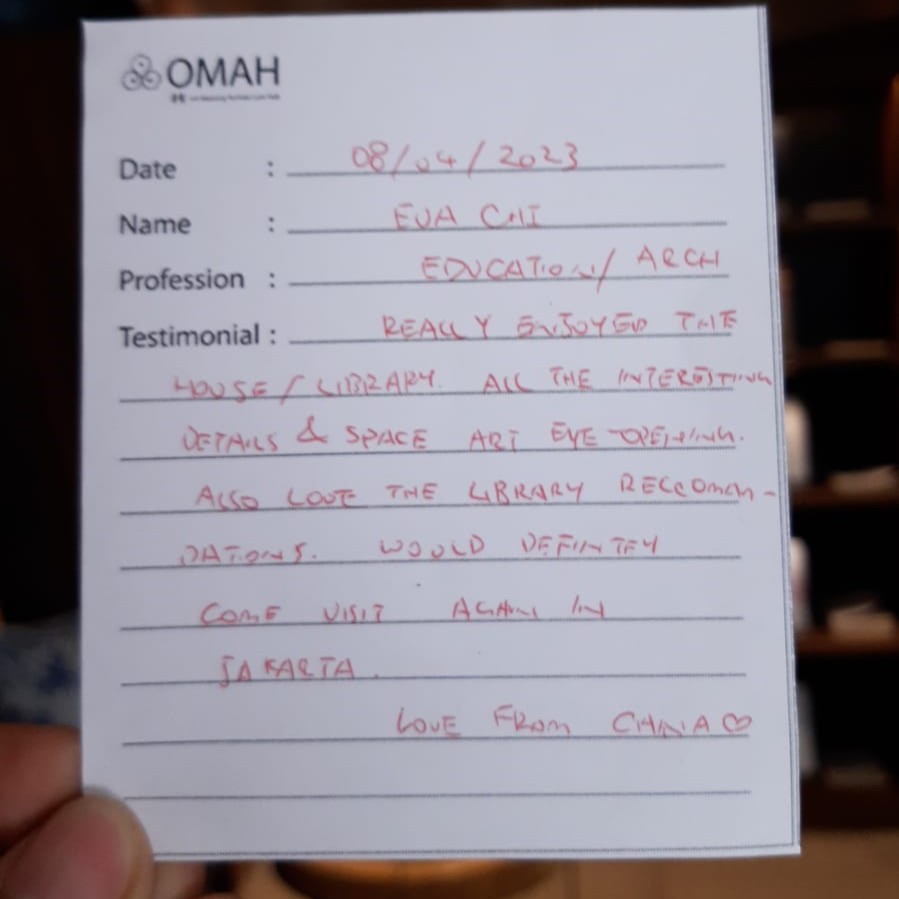 OMAH
Date : 08/04/2023
Name : EVA CHI
Profession : EDUCATION/ ARCH
Testimonial : REALLY ENJOYED THE
HOUSE/LIBRARY. ALL THE INTERESTING
DETAILS & SPACE ART EYE-OPENING.
ALSO LOVE THE LIBRARY RECCOMEN-
DATIONS. WOULD DEFINTEY
COME VISIT AGAIN IN
JAKARTA.
LOVE FROM CHINA♡